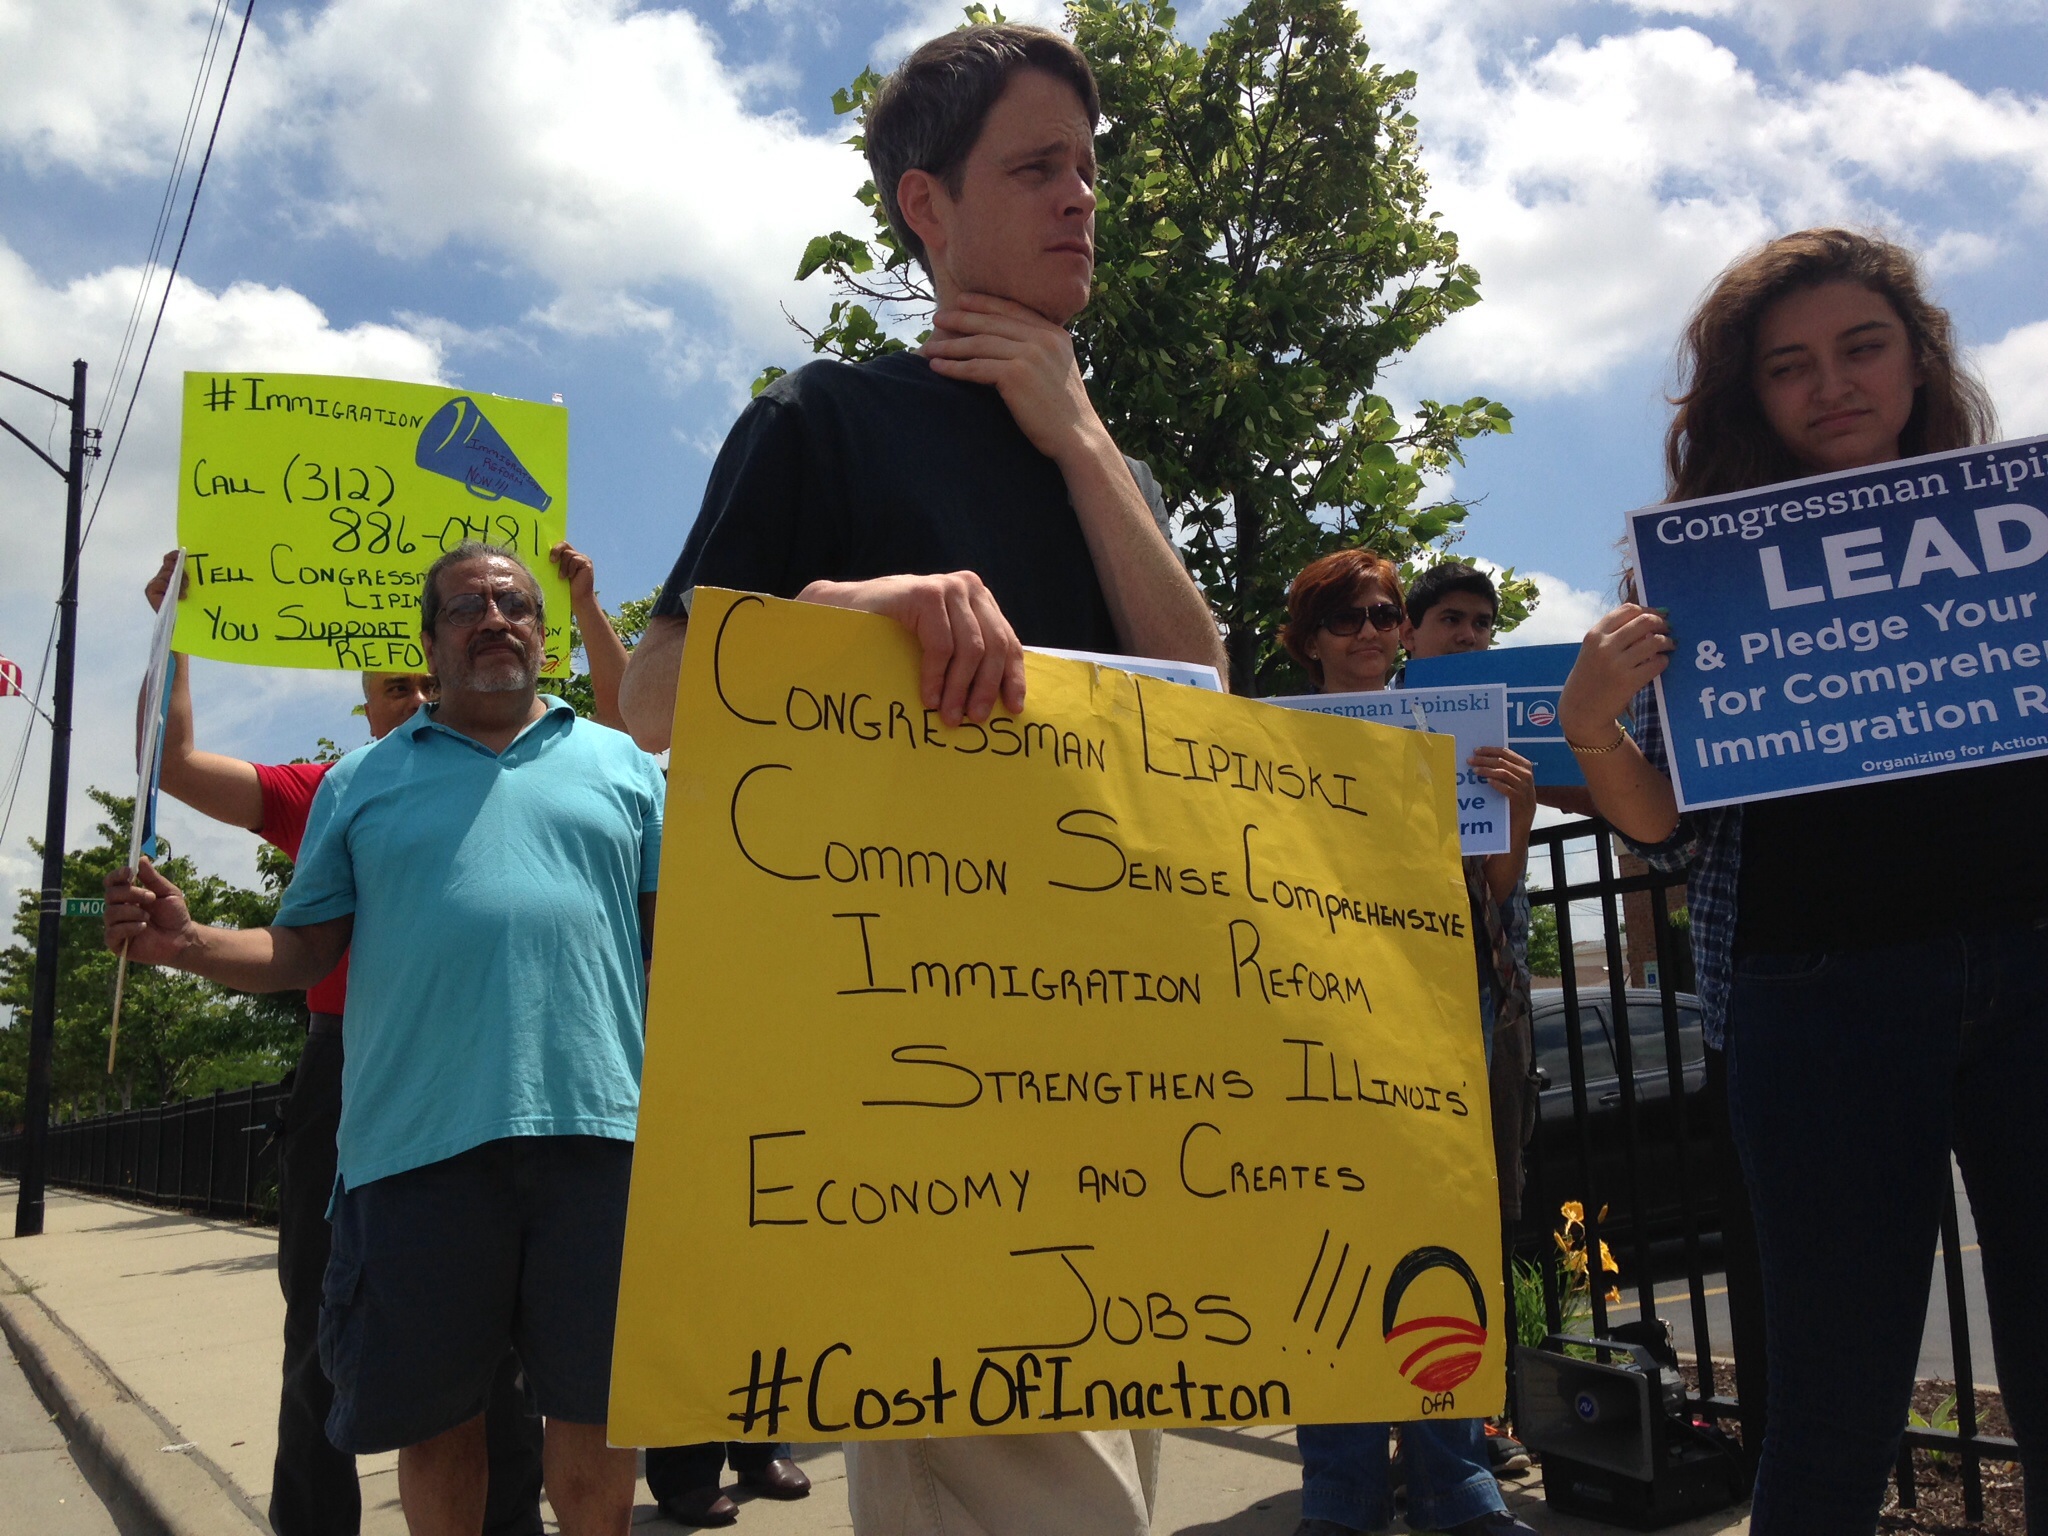 #IMMIGRATION
IMMIGRATION
REFORM
NOW!!!
CALL (312)
886-0481
TELL CONGRESSM
LIPIN
YOU SUPPORT
REFO
ON
S MOO
CONGRESSMAN LIPINSKI
COMMON SENSE COMPREHENSIVE
IMMIGRATION REFORM
STRENGTHENS ILLINOIS'
ECONOMY AND CREATES
JOBS!!!
#CostOfInaction
OFA
essman Lipinski
ote
ve
rm
TIO
Congressman Lipi
LEAD
& Pledge Your
for Comprehe
Immigration R
Organizing for Action